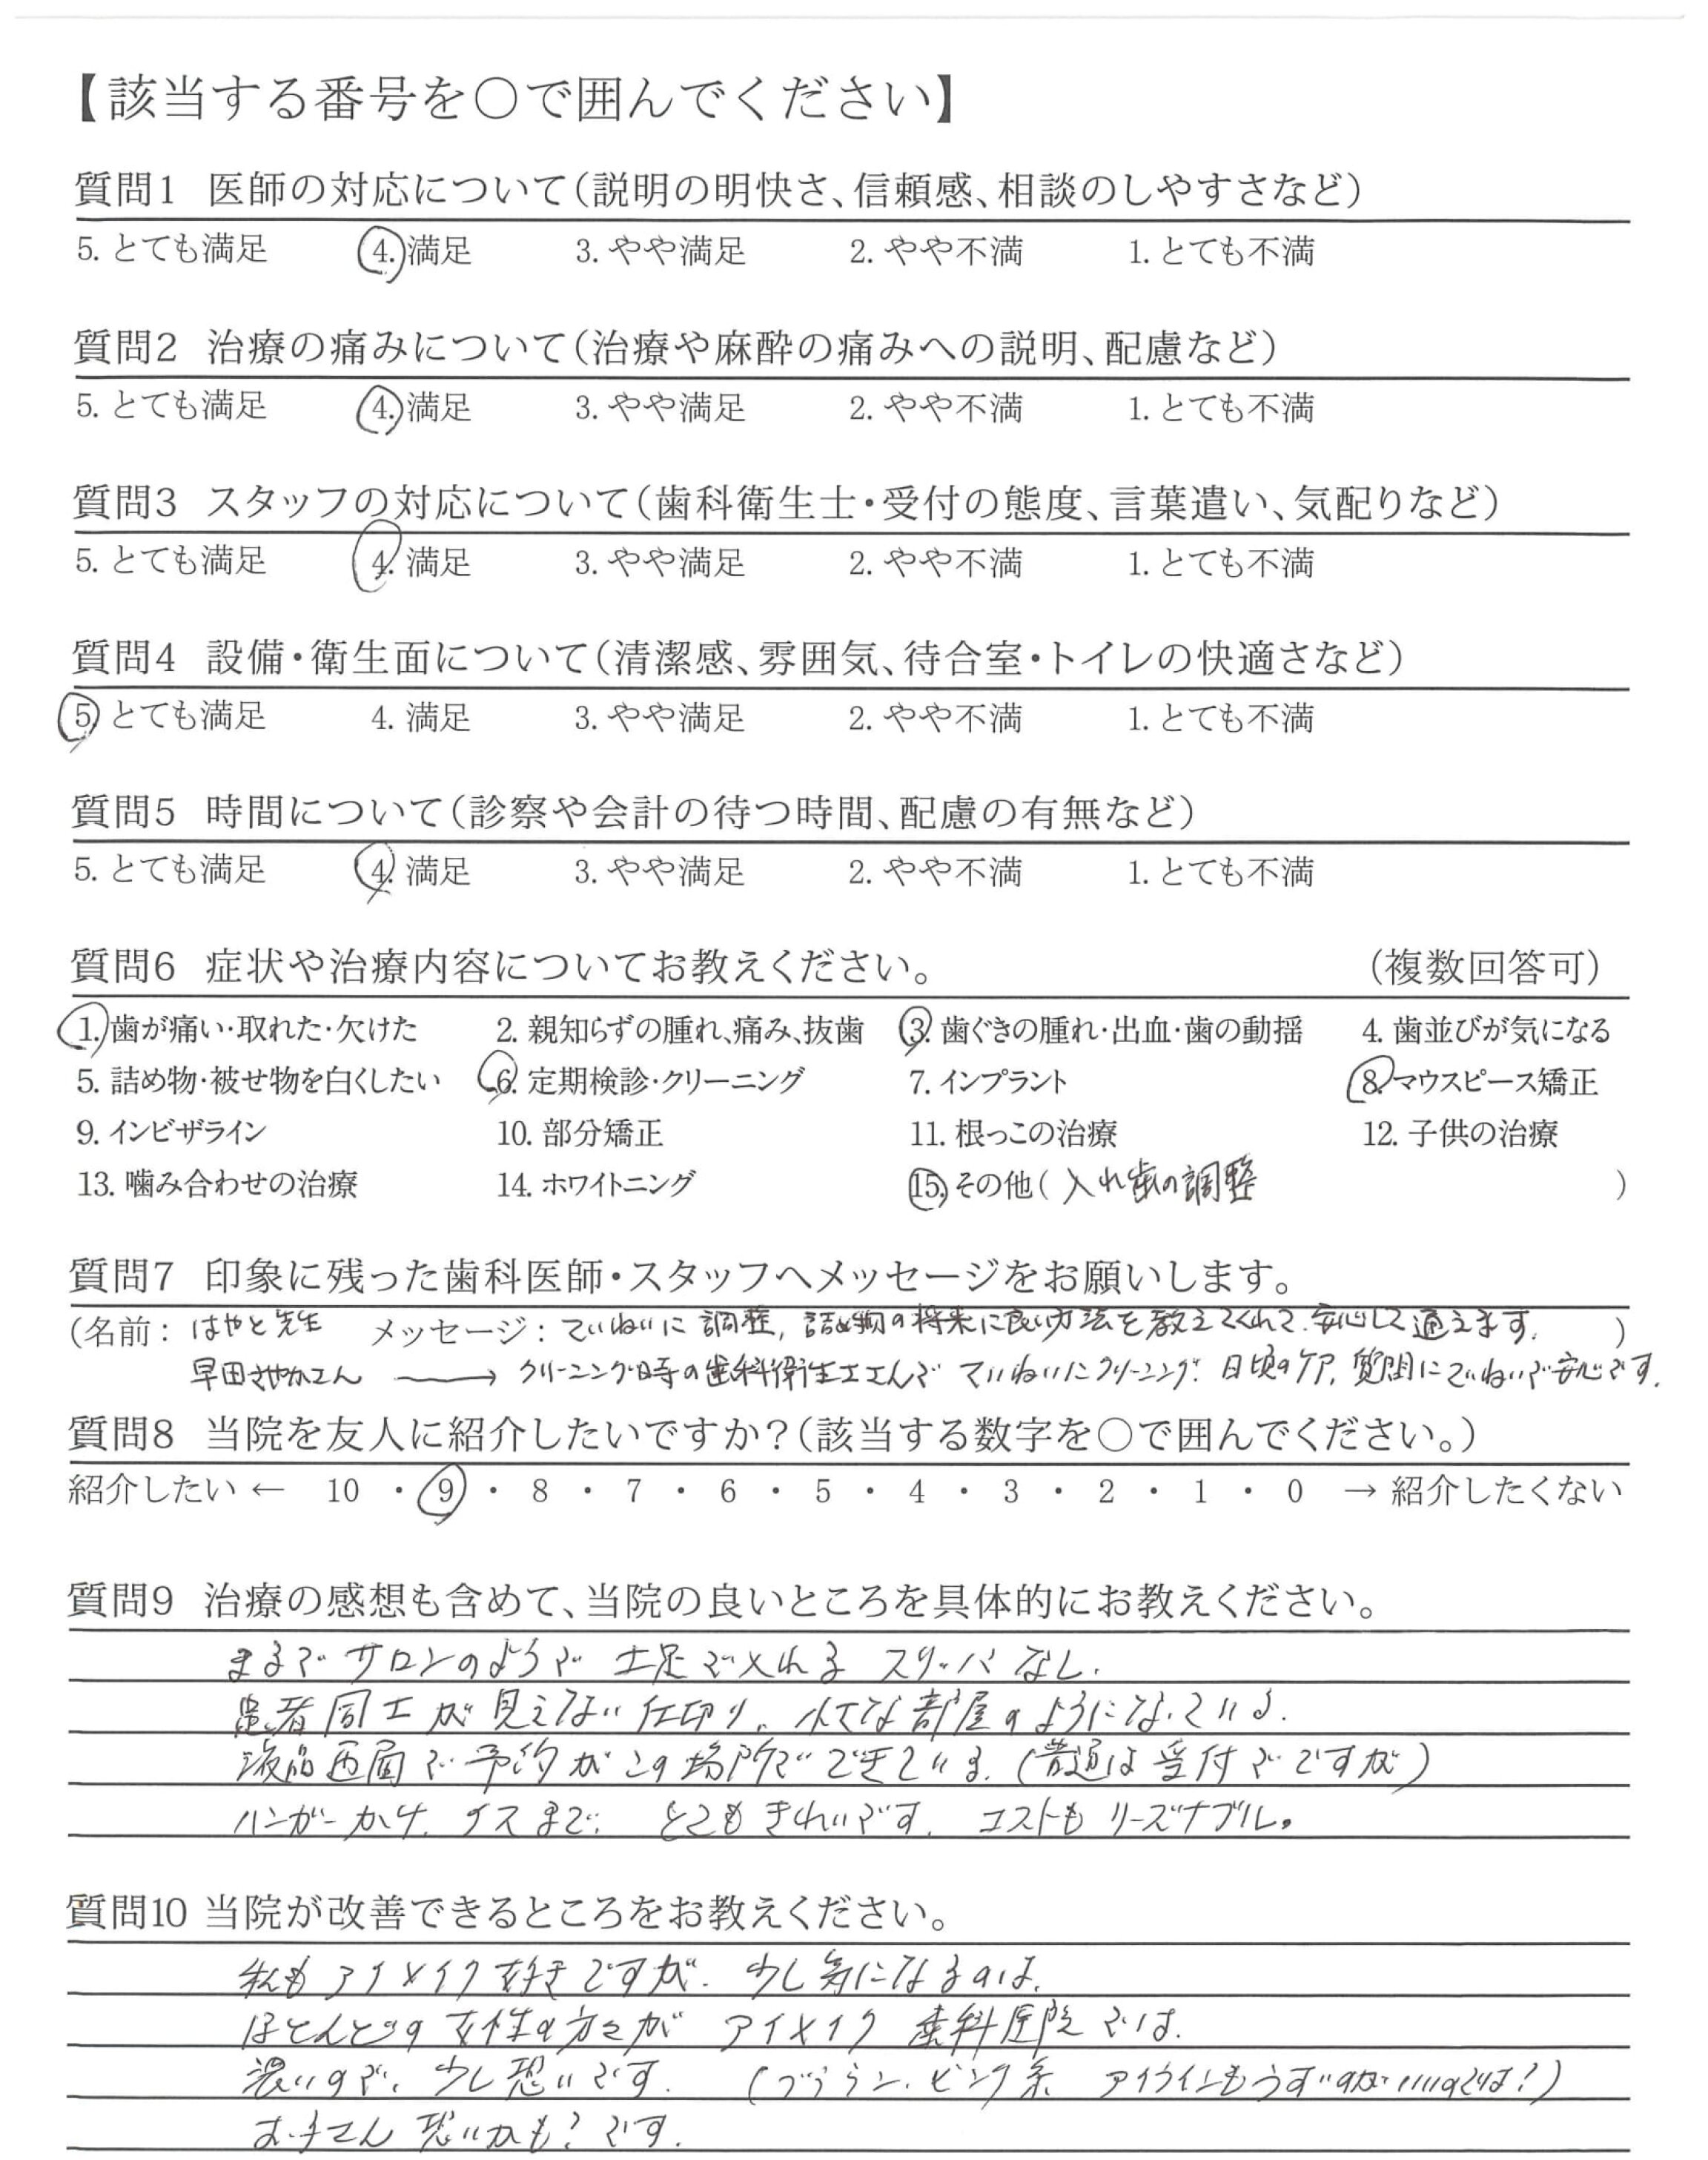 【該当する番号を○で囲んでください】
質問1 医師の対応について(説明の明快さ、信頼感、相談のしやすさなど)
5. とても満足 4. 満足 3. やや満足 2. やや不満 1. とても不満
質問2 治療の痛みについて(治療や麻酔の痛みへの説明、配慮など)
5. とても満足 4. 満足 3. やや満足 2. やや不満 1. とても不満
質問3 スタッフの対応について(歯科衛生士・受付の態度、言葉遣い、気配りなど)
5. とても満足 4. 満足 3. やや満足 2. やや不満 1. とても不満
質問4 設備・衛生面について(清潔感、雰囲気、待合室・トイレの快適さなど)
5. とても満足 4. 満足 3. やや満足 2. やや不満 1. とても不満
質問5 時間について(診察や会計の待つ時間、配慮の有無など)
5. とても満足 4. 満足 3. やや満足 2. やや不満 1. とても不満
質問6 症状や治療内容についてお教えください。 (複数回答可)
1. 歯が痛い・取れた・欠けた 2. 親知らずの腫れ、痛み、抜歯 3. 歯ぐきの腫れ・出血・歯の動揺 4. 歯並びが気になる
5. 詰め物・被せ物を白くしたい 6. 定期検診・クリーニング 7. インプラント 8. マウスピース矯正
9. インビザライン 10. 部分矯正 11. 根っこの治療 12. 子供の治療
13. 噛み合わせの治療 14. ホワイトニング 15. その他( 入れ歯の調整 )
質問7 印象に残った歯科医師・スタッフへメッセージをお願いします。
(名前: はやと先生 メッセージ: ていねいに調整, 詰め物の将来に良い方法を教えてくれて、安心して通えます。 )
早田さやかさん → クリーニング時の歯科衛生士さんで ていねいにクリーニング. 日頃のケア, 質問にていねいで安心です.
質問8 当院を友人に紹介したいですか?(該当する数字を○で囲んでください。)
紹介したい ← 10 ・ 9 ・ 8 ・ 7 ・ 6 ・ 5 ・ 4 ・ 3 ・ 2 ・ 1 ・ 0 → 紹介したくない
質問9 治療の感想も含めて、当院の良いところを具体的にお教えください。
まるで サロンのようで 土足で入れる スリッパなし.
患者同士が見えない仕切り. 小さな部屋のようになっている.
液晶画面で予約がこの場所でできている. (普通は受付でですが)
ハンガーかけ. イスまで. とてもきれいです. コストもリーズナブル。
質問10 当院が改善できるところをお教えください。
私も アイメイク好きですが. 少し気になるのは.
ほとんどの女性の方々が アイメイク 歯科医院では.
濃いので. 少し恐いです. (ブラウン. ピンク系 アイラインもうすいのがいいのでは?)
お子さん 恐いかも? です.